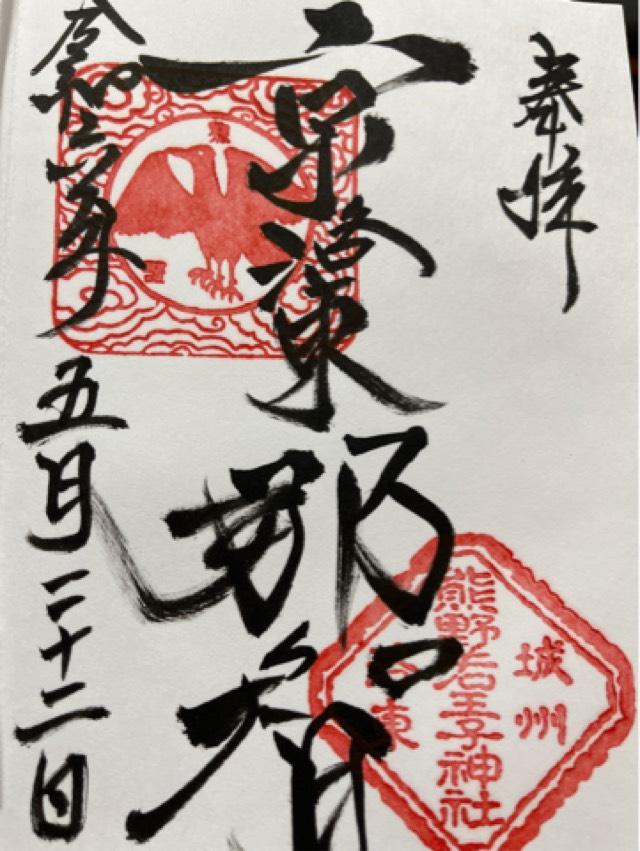 奉拝
京洛東那智
令和六年五月二十二日
城州
熊野若王子神社
洛東